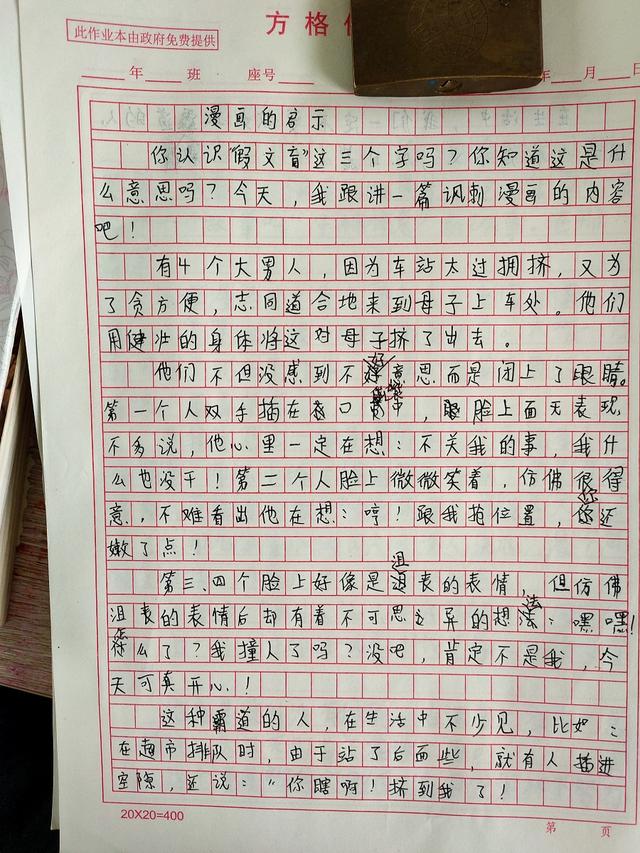 此作业本由政府免费提供
方格
年 班 座号 年 月 日
漫画的启示
你认识“假文盲”这三个字吗？你知道这是什
么意思吗？今天，我跟讲一篇讽刺漫画的内容
吧！
有4个大男人，因为车站太过拥挤，又为
了贪方便，志同道合地来到母子上车处。他们
用健壮的身体将这对母子挤了出去。
他们不但没感到不好意思而是闭上了眼睛。
第一个人双手插在口中，脸上面无表现，
不多说，他心里一定在想：不关我的事，我什
么也没干！第二个人脸上微微笑着，仿佛很得
意，不难看出他在想：哼！跟我抢位置，你还
嫩了点！
第三、四个脸上好像是沮丧的表情，但仿佛
沮丧的表情后却有着不可思之异的想法：嘿嘿！
怎么了？我撞人了吗？没吧，肯定不是我，今
天可真开心！
这种霸道的人，在生活中不少见，比如：
在超市排队时，由于站了后面些，就有人插进
空隙，还说：“你瞎啊！挤到我了！
20X20=400
第 页